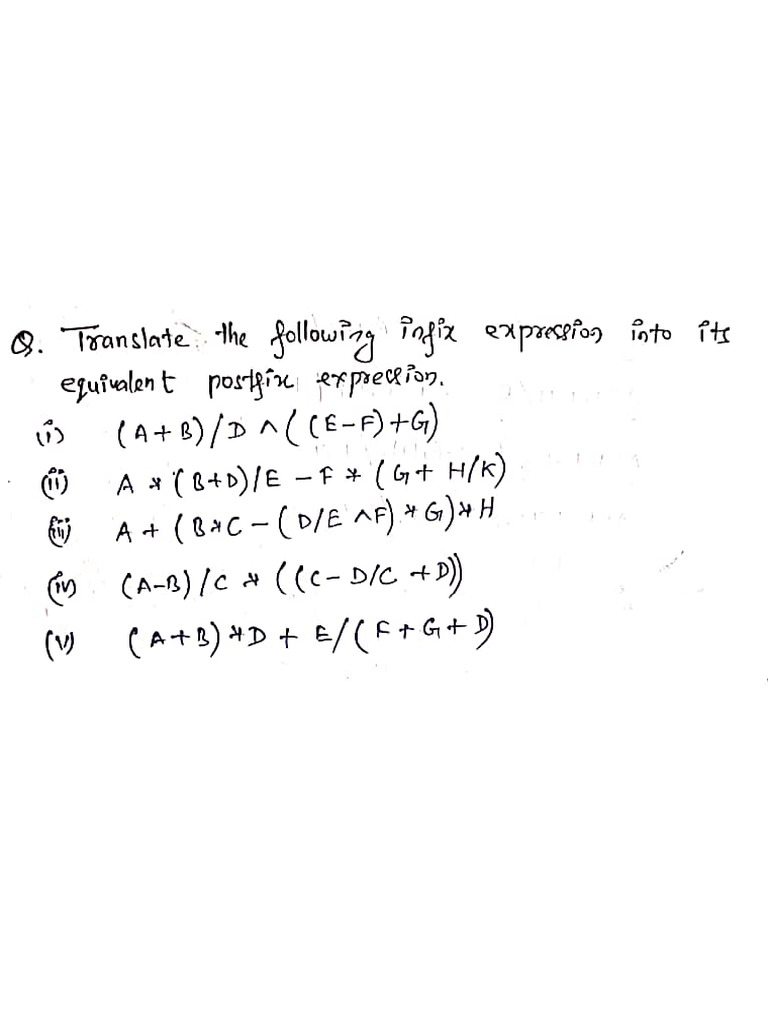 Q. Translate the following infix expression into its
equivalent postfix expression.
(i) (A+B)/D ∧ ((E-F)+G)
(ii) A * (B+D)/E - F * (G+ H/K)
(iii) A + (B*C - (D/E ∧F) * G)*H
(iv) (A-B)/C * ((C- D/C +D))
(v) (A+B)*D + E/(F+G+D)